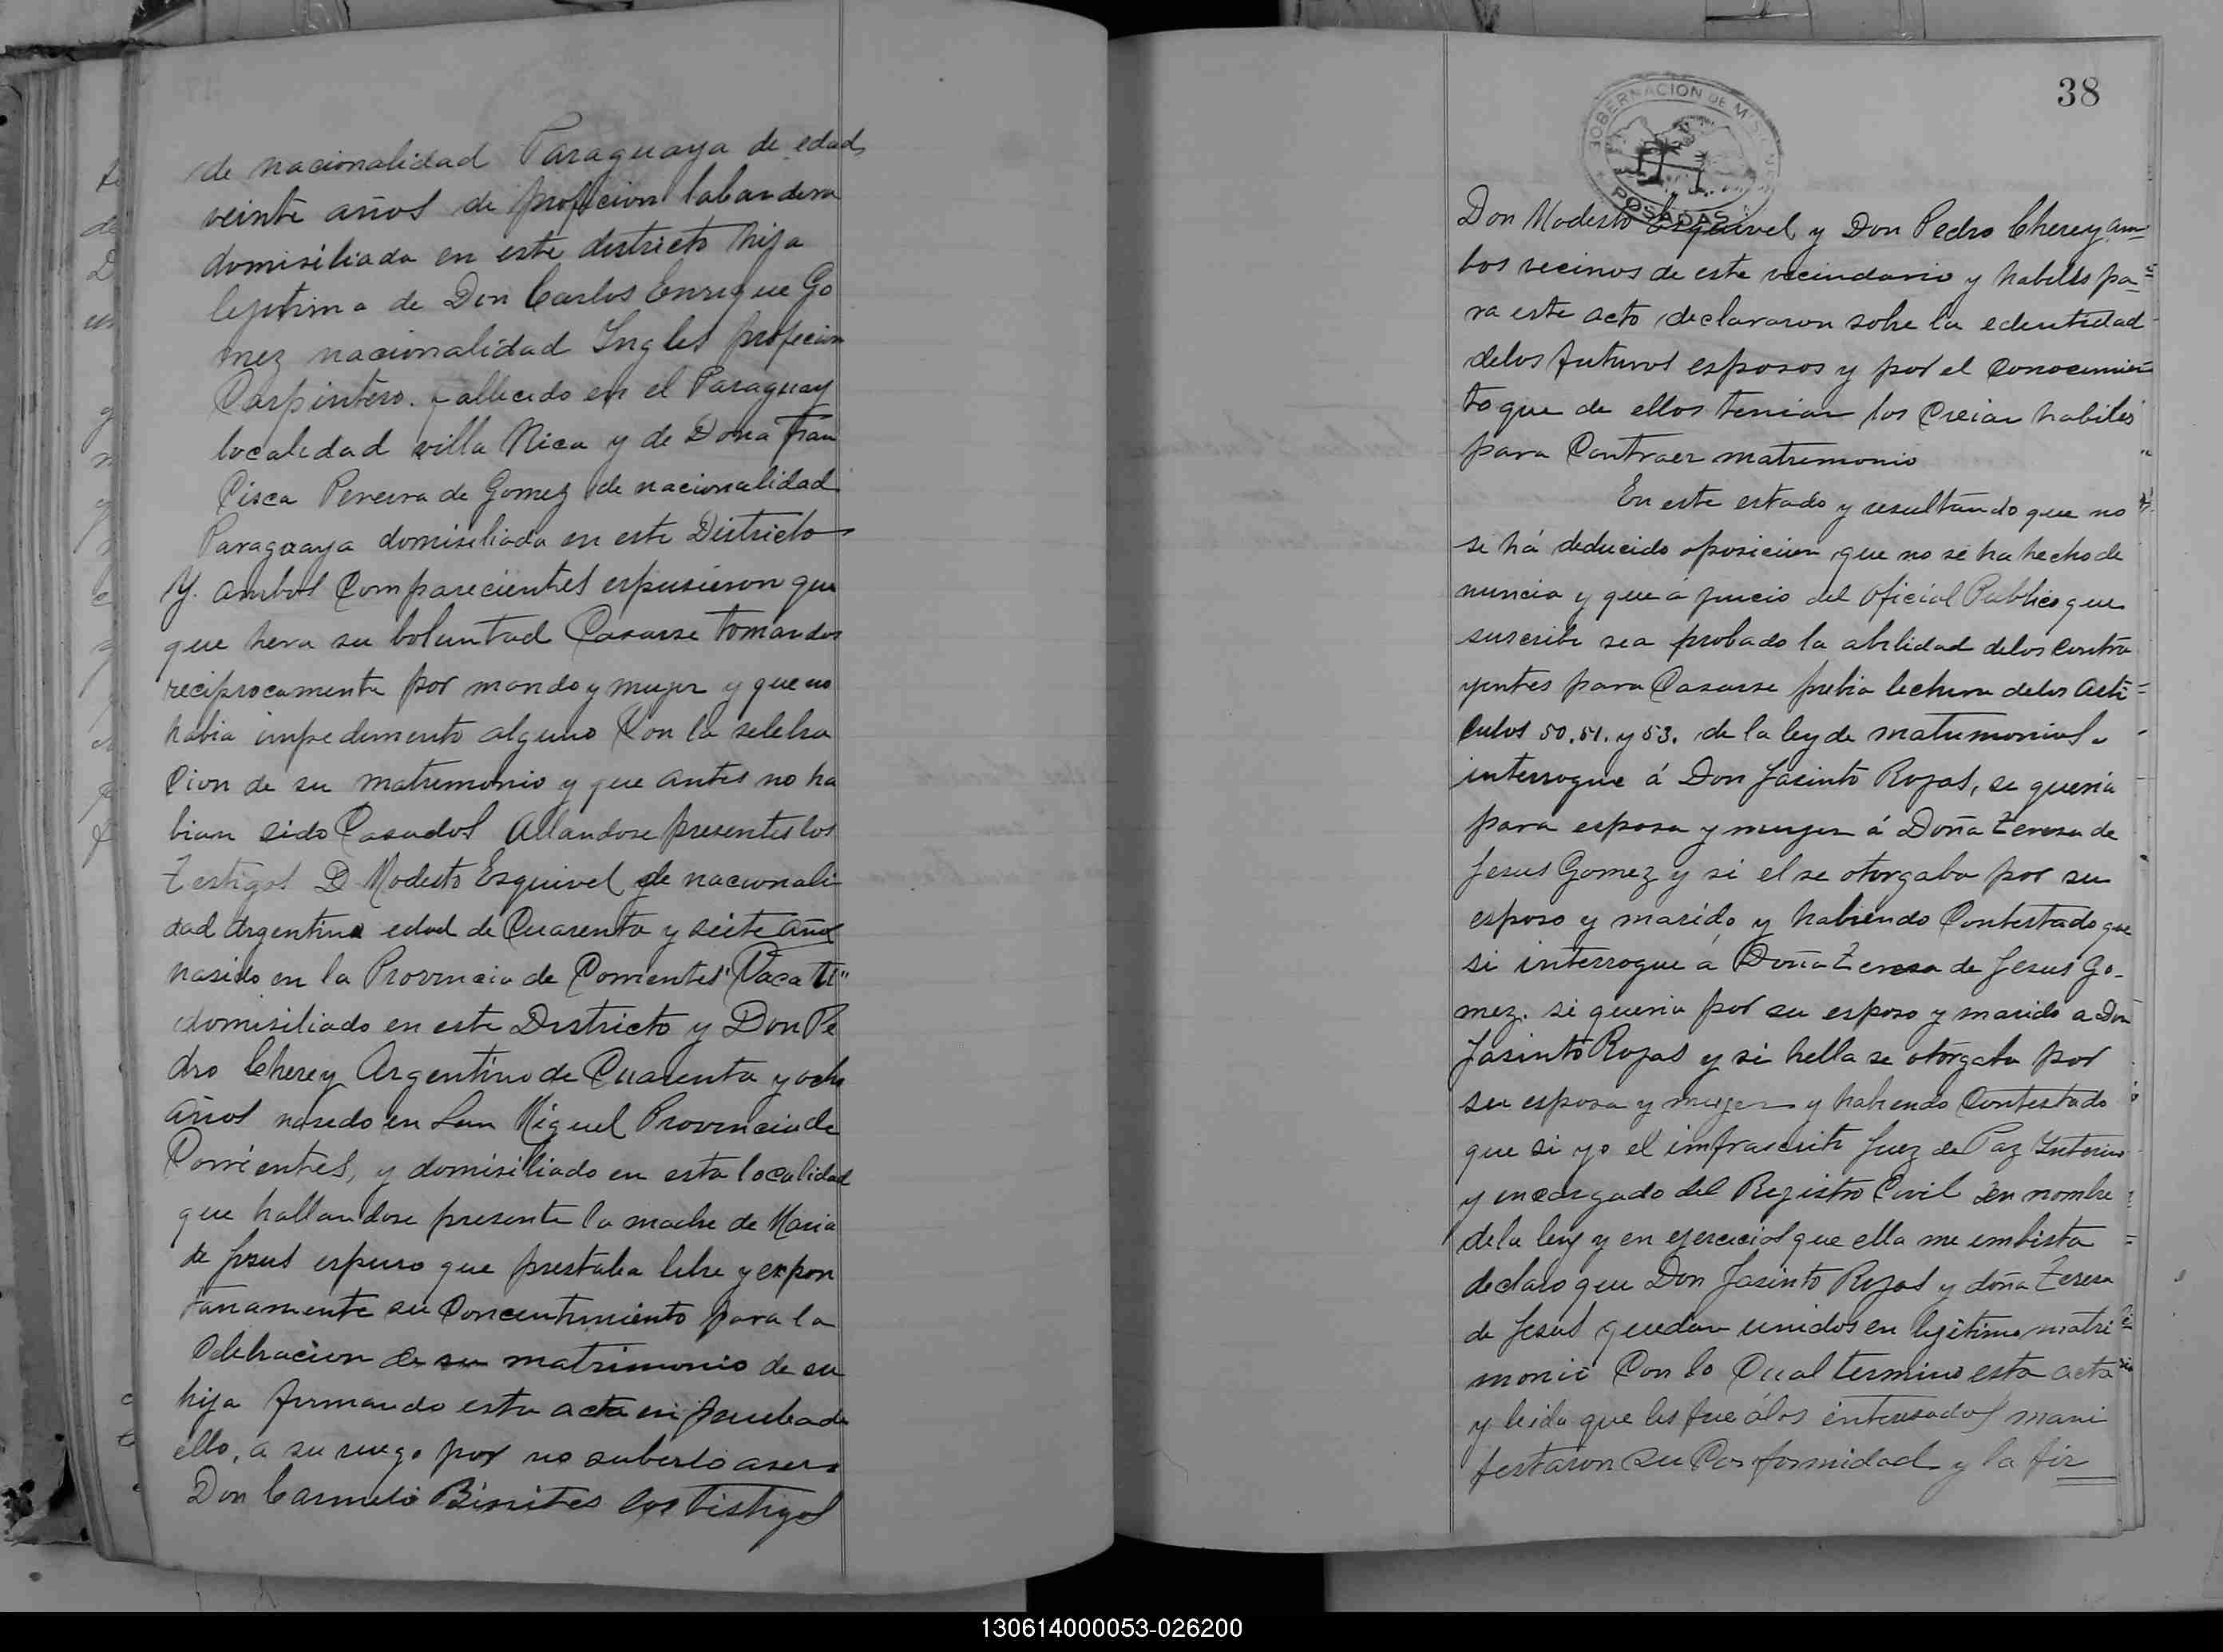 de nacionalidad Paraguaya de edad
veinte años de profecion labandera
domisiliada en este districto hija
lejitima de Don Carlos Enrique Go
mez nacionalidad Ingles profecion
Carpintero. fallecido en el Paraguay
localidad villa Rica y de Doña Fran
Cisca Pereira de Gomez de nacionalidad
Paraguaya domisiliada en este Districto
Y. ambos Comparecientes espusieron que
que hera su boluntad Casarse tomandos
reciprocamente por marido y mujer y que no
habia impedimento alguno Con la selebra
Cion de su matrimonio y que antes no ha
bian sido Casados Allandose presentes los
Testigos D Modesto Esquivel de nacionali
dad Argentina edad de Cuarenta y seite años
nasido en la Provincia de Corrientes "Caca ti"
domisiliado en este Districto y Don Pe
dro Cherey Argentino de Cuarenta y ocho
años nasido en San Miguel Provincia de
Corrientes, y domisiliado en esta localidad
que hallandose presente la madre de Maria
de Jesus espuso que prestaba libre y expon
tanamente su Concentimiento para la
Celebracion de su matrimonio de su
hija firmando esta acta en prueba de
ello, a su ruego por no saberlo aser
Don Carmelo Binites los Testigos
38
GOBERNACION DE MISIONES
POSADAS
Don Modesto Esquivel y Don Pedro Cherey am
bos vecinos de este vecindario y habiles pa
ra este acto declararon sobre la edentidad
delos futuros esposos y por el Conocimien
to que de ellos tenian los Creian habiles
para Contraer matrimonio
En este estado y resultando que no
se há deducido oposicion que no se ha hecho de
nuncia y que a juicio del Oficial Publico que
suscribe sea probado la abilidad delos Contra
yentes para Casarse prebia lectura delos Arti
Culos 50. 51. y 53. de la ley de matrimonios
interrogue á Don Jasinto Rojas, se queria
para esposa y mujer á Doña Teresa de
Jesus Gomez y si el se otorgaba por su
esposo y marido y habiendo Contestado que
si interrogue á Doña Teresa de Jesus Go-
mez. si queria por su esposo y marido a Don
Jasinto Rojas y si hella se otorgaba por
su esposa y mujer y habiendo Contestado
que si yo el imfrascrito Juez de Paz Interino
y encargado del Registro Civil en nombre
de la ley y en ejercicios que ella me embista
declaro que Don Jasinto Rojas y doña Teresa
de Jesus quedan unidos en lejitimo matri
monio Con lo Cual termino esta acta
y leida que les fue álos interesados mani
festaron su Conformidad y la fir
130614000053-026200